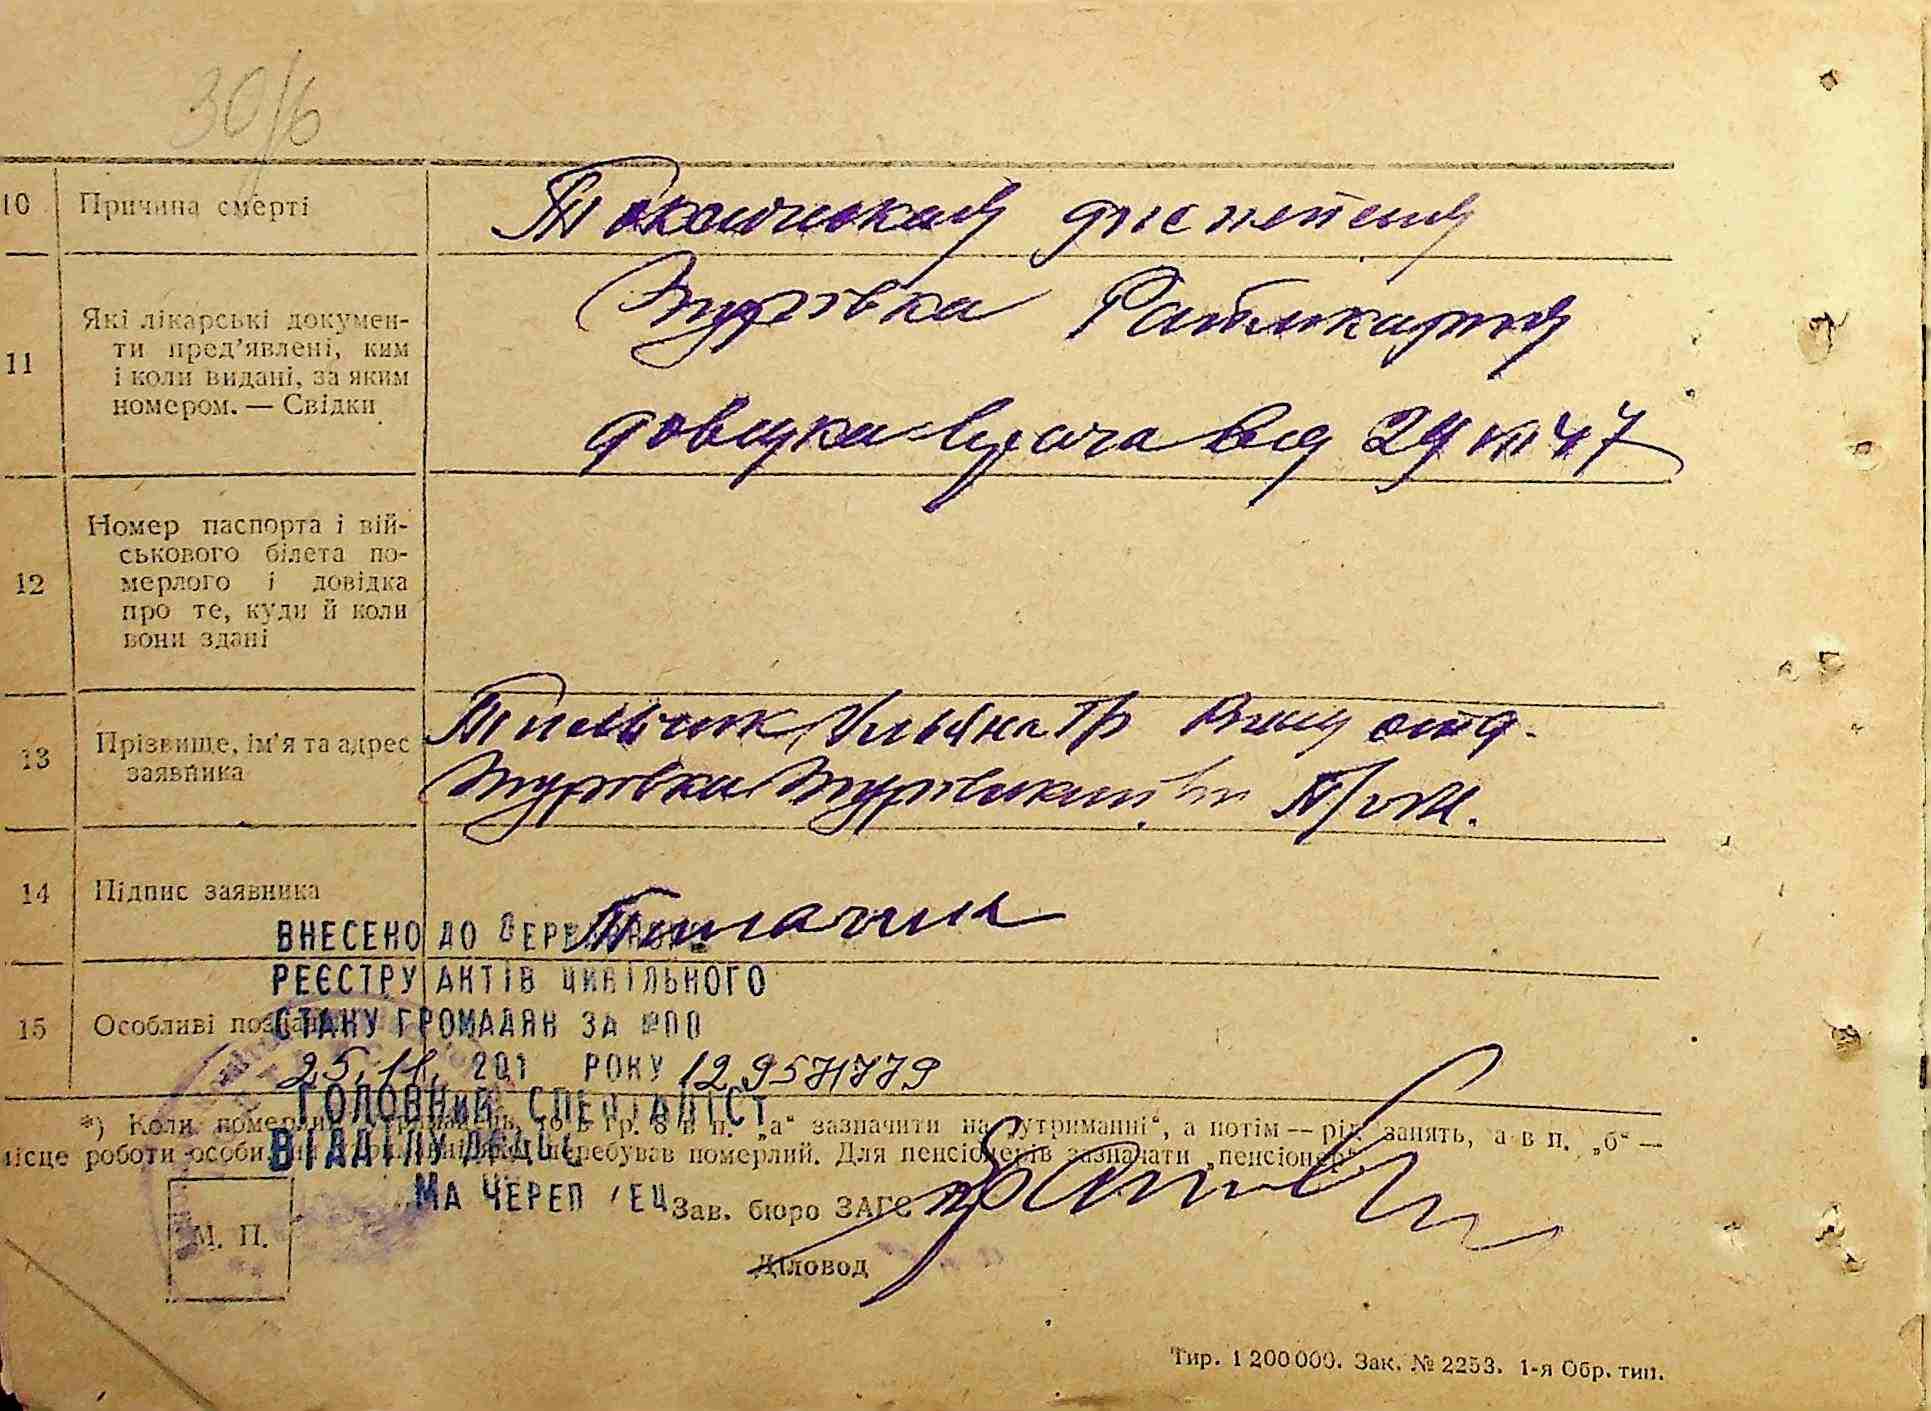 30/6
10 Причина смерті Токсическая диспепсия
11 Які лікарські докумен-
ти пред’явлені, ким
і коли видані, за яким
номером. — Свідки
Турівка Райлікарня
довідка врача від 29 VII 47
12 Номер паспорта і вій-
ськового білета по-
мерлого і довідка
про те, куди й коли
вони здані
13 Прізвище, ім’я та адрес
заявника
Ульяна
Турівка Турівський
14 Підпис заявника
ВНЕСЕНО ДО
РЕЄСТРУ АКТІВ ЦИВІЛЬНОГО
15 Особливі
СТАНУ ГРОМАДЯН ЗА №00
25.11. 201 РОКУ 12957779
ГОЛОВНИЙ СПЕЦІАЛІСТ
*) Коли то в гр. 8 в п. „а“ зазначити на „утриманні“, а потім — рід занять, а в п. „б“ —
місце роботи особи, перебував померлий. Для пенсіонерів зазначати „пенсіонер“.
ВІДДІЛУ
МА ЧЕРЕП ЕЦ
Зав. бюро ЗАГС
М. П.
Діловод
Тир. 1 200 000. Зак. № 2253. 1-я Обр. тип.